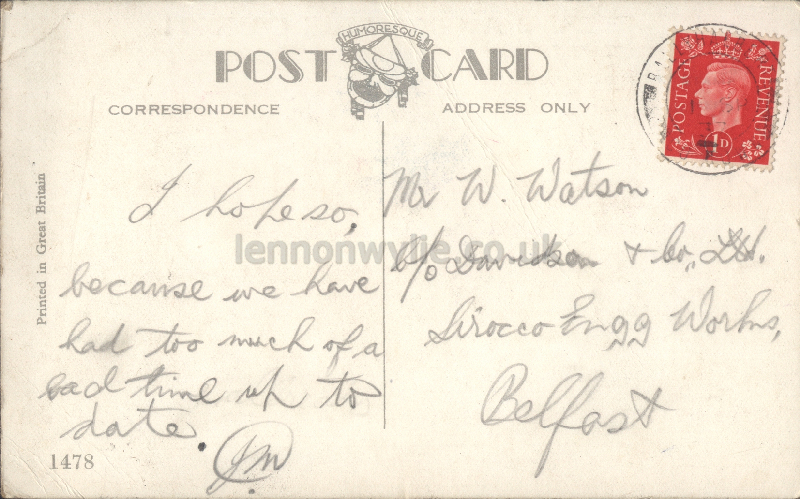 HUMORESQUE
POST CARD
CORRESPONDENCE
ADDRESS ONLY
POSTAGE
REVENUE
1D
Printed in Great Britain
I hope so,
because we have
had too much of a
bad time up to
date.
JM
1478
Mr W. Watson
c/o Davidson & Co., Ltd.
Sirocco Engg Works,
Belfast
lennonwylie.co.uk